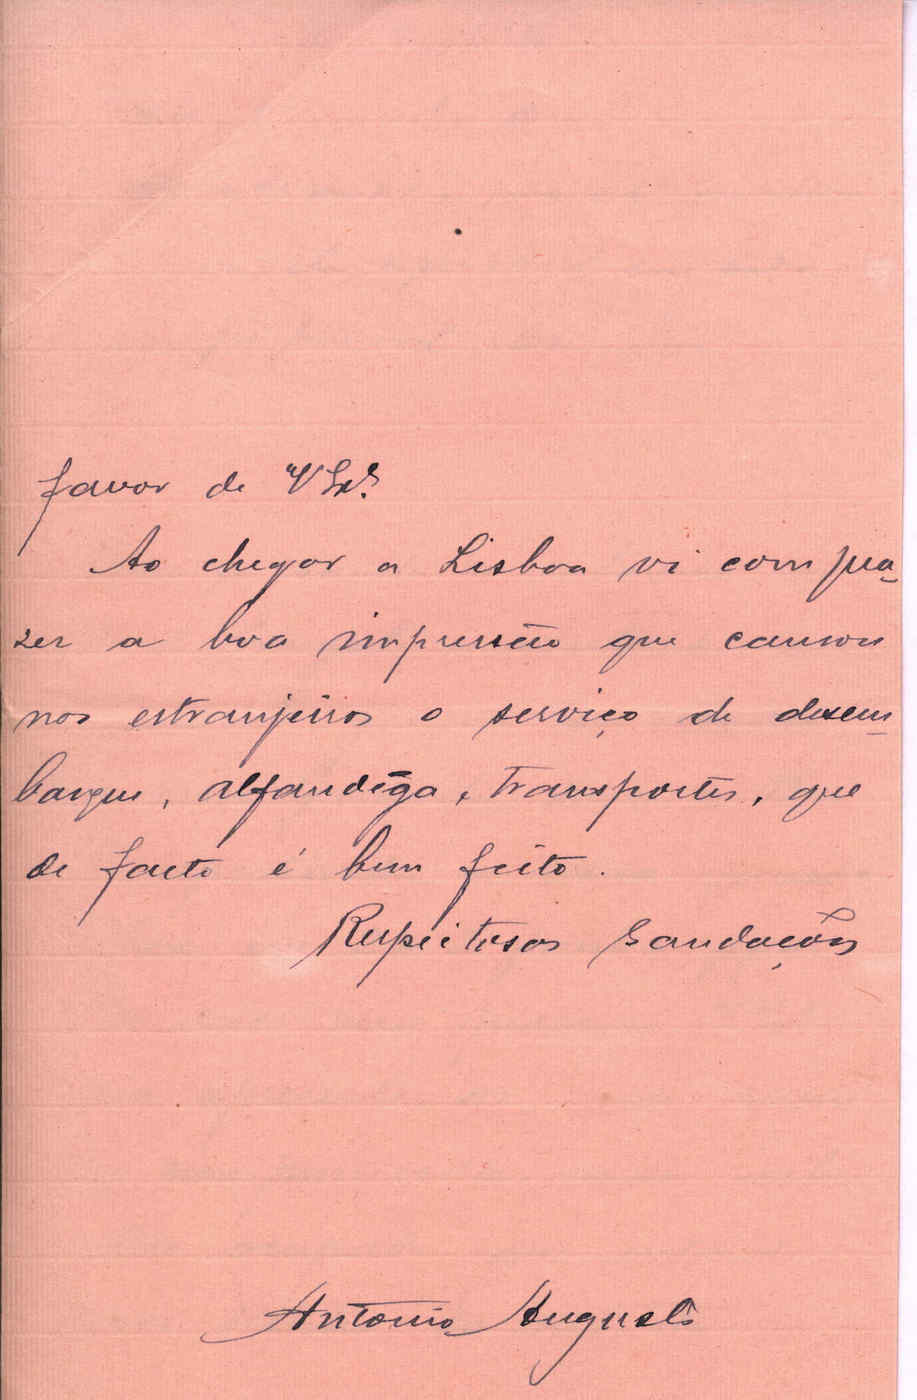 favor de V Ex.ª
Ao chegar a Lisboa vi com pra-
zer a boa impressão que causou
nos estranjeiros o serviço de desem-
barque, alfandêga, transportes, que
de facto é bem feito.
Respeitosas Saudações
Antonio Augusto